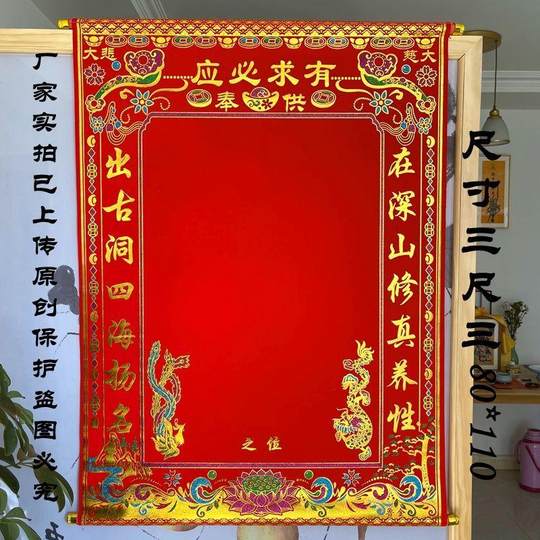 大慈
大悲
有求必应
供奉
在深山修真养性
出古洞四海扬名
之位
厂家实拍已上传原创保护盗图必究
尺寸三尺三80*110